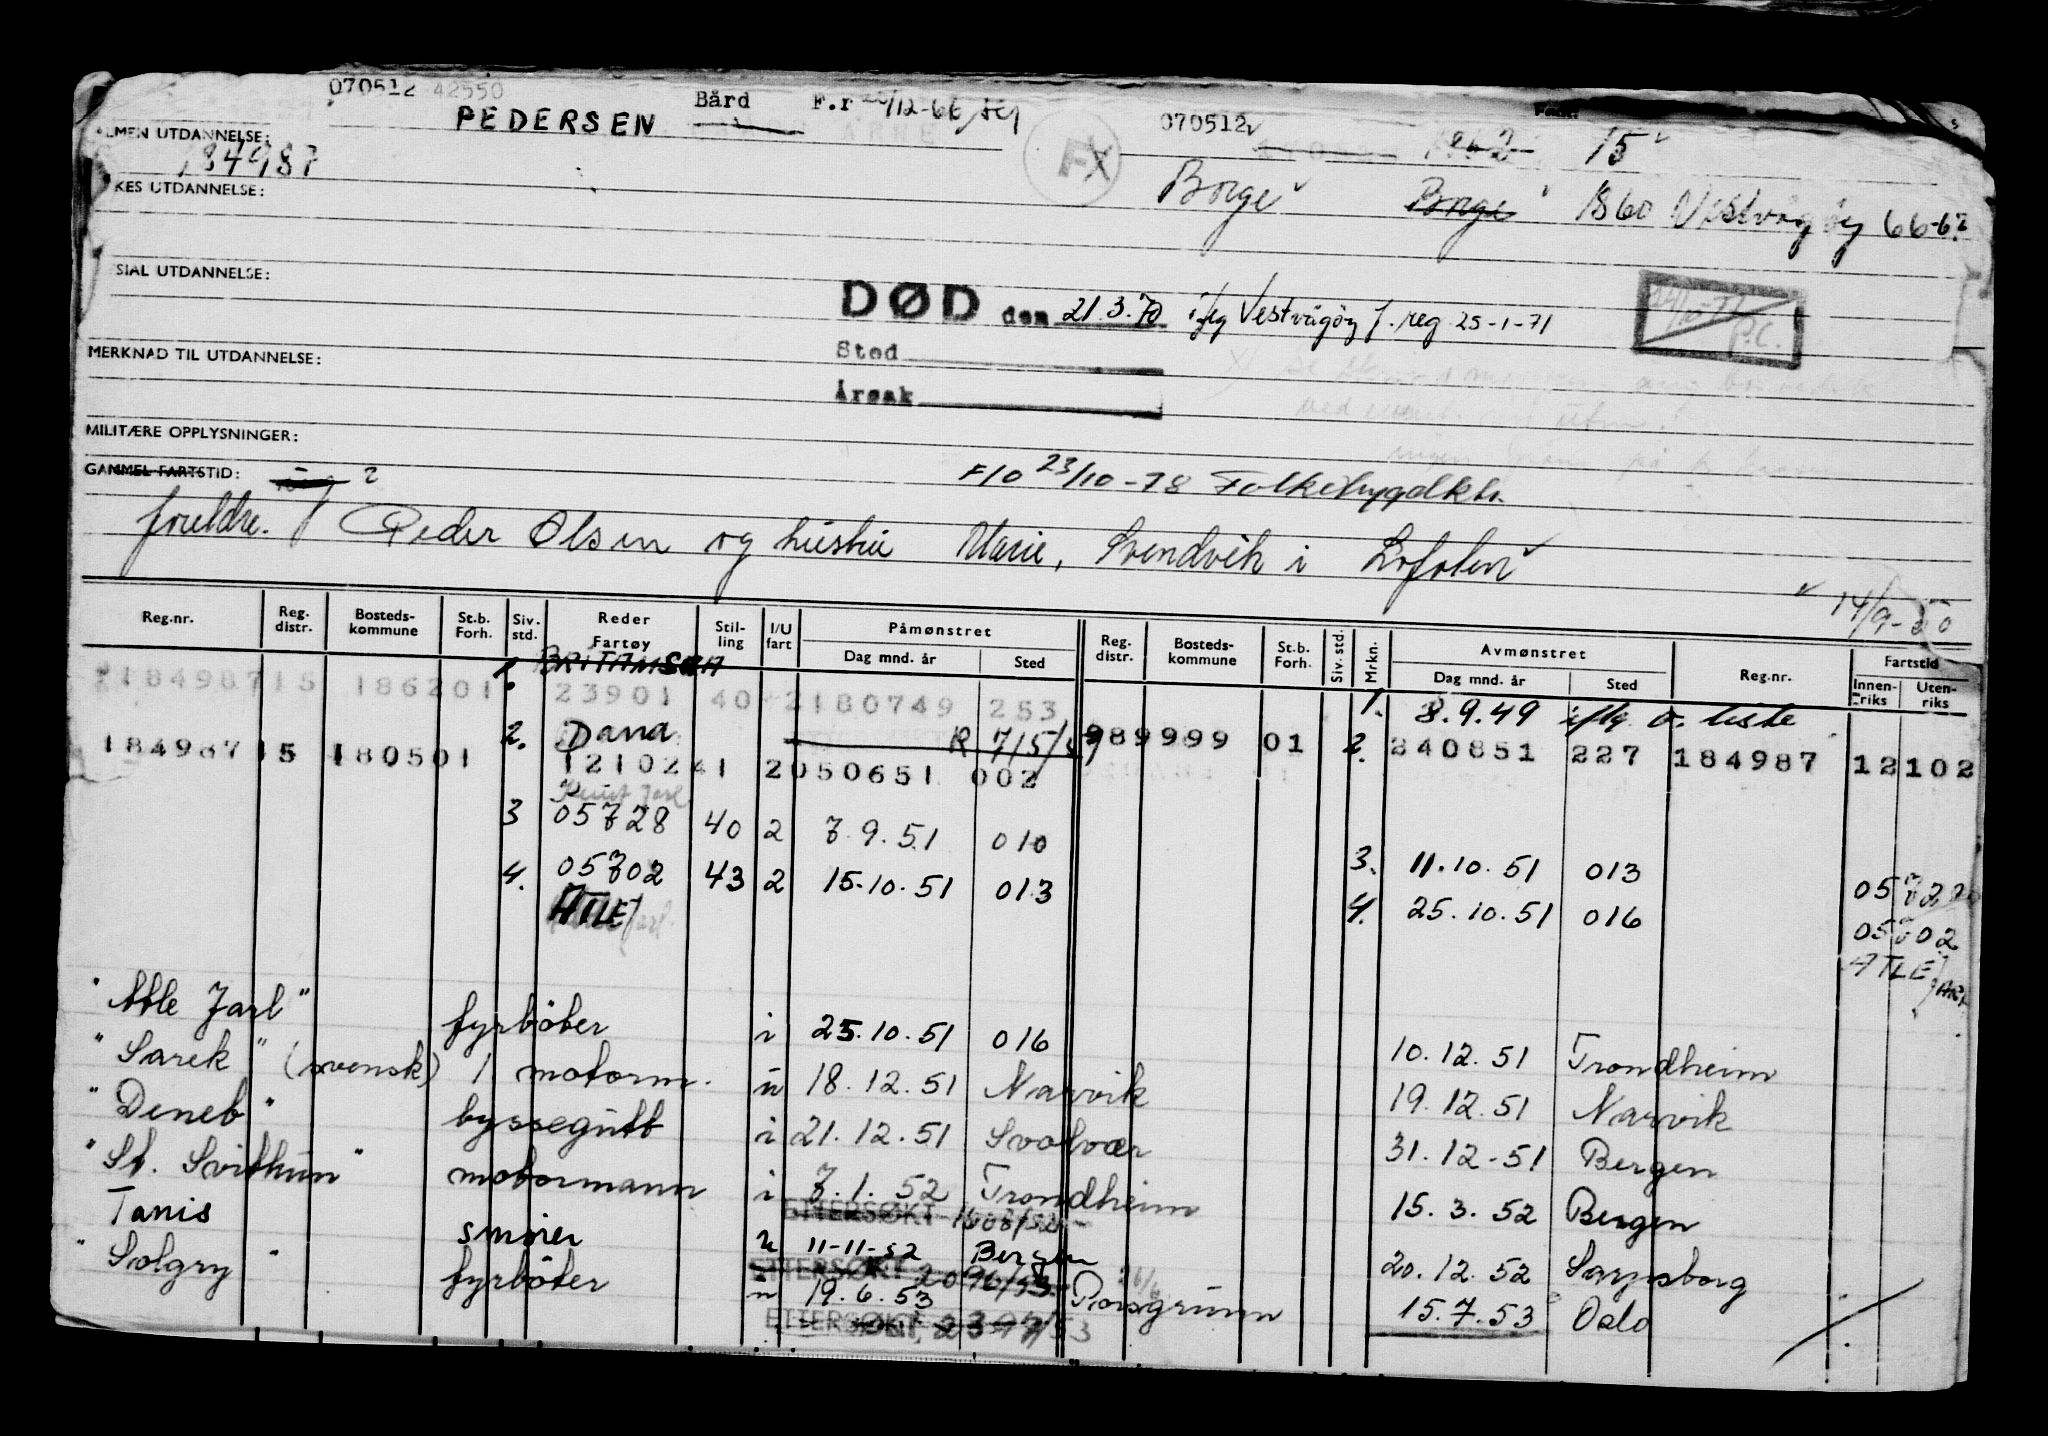 070512 42550
PEDERSEN Bård F.r 12-66
070512
ALMEN UTDANNELSE:
184987
FX
15
KES UTDANNELSE:
Borge Borge 1860 Vestvågøy 66-67
SIAL UTDANNELSE:
DØD den 21.3.70 iflg Vestvågøy f.reg 25-1-71
Sted
MERKNAD TIL UTDANNELSE:
Årsak
MILITÆRE OPPLYSNINGER:
GAMMEL FARTSTID: ?
F/O 23/10-78
foreldre. Peder Olsen og hustru Marie, Svendvik i Lofoten
14/9-50
Reg.nr. Reg. distr. Bosteds-kommune St.b. Forh. Siv. std. Reder Fartøy Stil-ling I/U fart Påmønstret Dag mnd. år Sted Reg. distr. Bosteds-kommune St.b. Forh. Siv. std. Mrkn. Avmønstret Dag mnd. år Sted Reg.nr. Fartstid Innen-riks Uten-riks
1. BRITAMSEA
218498715 186201 23901 40 2180749 253 1. 8.9.49 iflg. o. liste
2. Dana R 715/51
184987 15 180501 1210241 2050651 002 989999 01 2. 240851 227 184987 12102
3 05728 40 2 7.9.51 010 3. 11.10.51 013 05722
4. 05702 43 2 15.10.51 013 4. 25.10.51 016 05702
ATLE Jarl ATLE JARL
"Atle Jarl" fyrböter i 25.10.51 016 10.12.51 Trondheim
"Sarek" (svensk) 1 motorm. u 18.12.51 Narvik 19.12.51 Narvik
"Deneb" byssegutt i 21.12.51 Svolvær 31.12.51 Bergen
"St. Svithun" motormann i 7.1.52 Trondheim 15.3.52 Bergen
ETTERSØKT 1608/52
Tanis smører u 11-11-52 Bergen 20.12.52 Sarpsborg
ETTERSØKT 2096/53
"Solgry" fyrböter u 19.6.53 Porsgrunn 15.7.53 Oslo
ETTERSØKT 2397/53